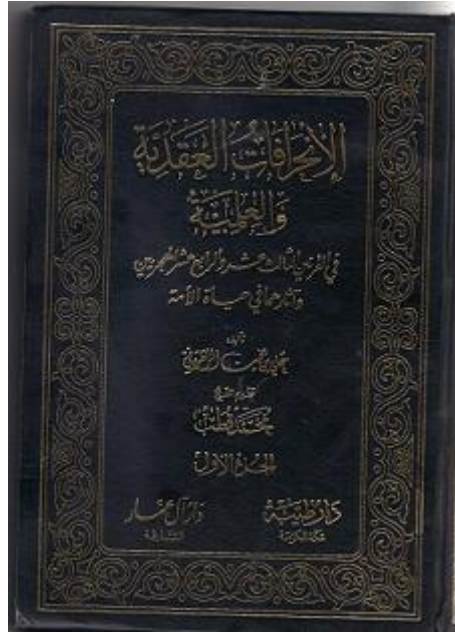 الانحرافات العقدية
والعلمية
في القرنين الثالث عشر والرابع عشر الهجريين
وآثارهما في حياة الأمة
تأليف
علي بن بخيت الزهراني
تقديم الشيخ
محمد قطب
الجزء الاول
دار طيبة
مكة المكرمة
دار آل عمار
الشارقة